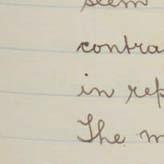 seem
contra
in rep
The m